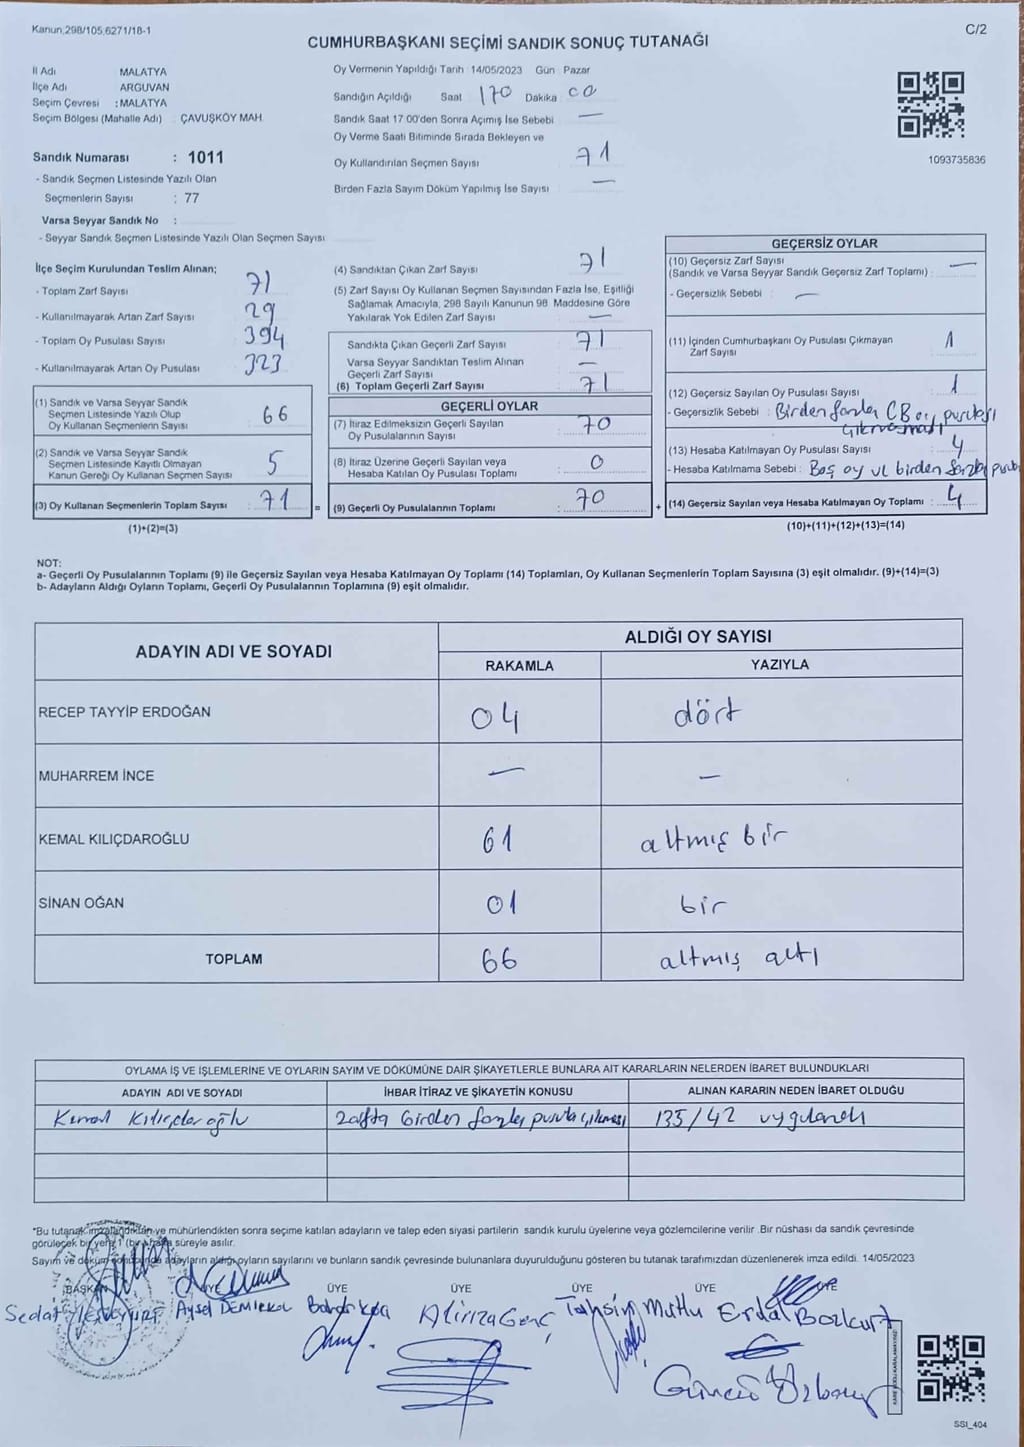 Kanun;298/105,6271/18-1
C/2
CUMHURBAŞKANI SEÇİMİ SANDIK SONUÇ TUTANAĞI
İl Adı MALATYA
İlçe Adı ARGUVAN
Seçim Çevresi : MALATYA
Seçim Bölgesi (Mahalle Adı) ÇAVUŞKÖY MAH.
Sandık Numarası : 1011
- Sandık Seçmen Listesinde Yazılı Olan
Seçmenlerin Sayısı : 77
Varsa Seyyar Sandık No :
- Seyyar Sandık Seçmen Listesinde Yazılı Olan Seçmen Sayısı
Oy Vermenin Yapıldığı Tarih 14/05/2023 Gün Pazar
Sandığın Açıldığı Saat 170 Dakika 00
Sandık Saat 17.00'den Sonra Açılmış İse Sebebi —
Oy Verme Saati Bitiminde Sırada Bekleyen ve
Oy Kullandırılan Seçmen Sayısı 71
Birden Fazla Sayım Döküm Yapılmış İse Sayısı —
1093735836
İlçe Seçim Kurulundan Teslim Alınan;
- Toplam Zarf Sayısı 71
- Kullanılmayarak Artan Zarf Sayısı 29
- Toplam Oy Pusulası Sayısı 394
- Kullanılmayarak Artan Oy Pusulası 323
(1) Sandık ve Varsa Seyyar Sandık
Seçmen Listesinde Yazılı Olup
Oy Kullanan Seçmenlerin Sayısı 66
(2) Sandık ve Varsa Seyyar Sandık
Seçmen Listesinde Kayıtlı Olmayan
Kanun Gereği Oy Kullanan Seçmen Sayısı 5
(3) Oy Kullanan Seçmenlerin Toplam Sayısı 71 =
(1)+(2)=(3)
(4) Sandıktan Çıkan Zarf Sayısı 71
(5) Zarf Sayısı Oy Kullanan Seçmen Sayısından Fazla İse, Eşitliği
Sağlamak Amacıyla, 298 Sayılı Kanunun 98. Maddesine Göre
Yakılarak Yok Edilen Zarf Sayısı —
Sandıkta Çıkan Geçerli Zarf Sayısı 71
Varsa Seyyar Sandıktan Teslim Alınan
Geçerli Zarf Sayısı —
(6) Toplam Geçerli Zarf Sayısı 71
GEÇERLİ OYLAR
(7) İtiraz Edilmeksizin Geçerli Sayılan
Oy Pusulalarının Sayısı 70
(8) İtiraz Üzerine Geçerli Sayılan veya
Hesaba Katılan Oy Pusulası Toplamı 0
(9) Geçerli Oy Pusulalarının Toplamı 70 +
GEÇERSİZ OYLAR
(10) Geçersiz Zarf Sayısı —
(Sandık ve Varsa Seyyar Sandık Geçersiz Zarf Toplamı) :
- Geçersizlik Sebebi : —
(11) İçinden Cumhurbaşkanı Oy Pusulası Çıkmayan
Zarf Sayısı 1
(12) Geçersiz Sayılan Oy Pusulası Sayısı 1
- Geçersizlik Sebebi : Birden fazla CB oy pusulası
çıkmamadı
(13) Hesaba Katılmayan Oy Pusulası Sayısı 4
- Hesaba Katılmama Sebebi : Boş oy ve birden fazla pusula
(14) Geçersiz Sayılan veya Hesaba Katılmayan Oy Toplamı : 4
(10)+(11)+(12)+(13)=(14)
NOT:
a- Geçerli Oy Pusulalarının Toplamı (9) ile Geçersiz Sayılan veya Hesaba Katılmayan Oy Toplamı (14) Toplamları, Oy Kullanan Seçmenlerin Toplam Sayısına (3) eşit olmalıdır. (9)+(14)=(3)
b- Adayların Aldığı Oyların Toplamı, Geçerli Oy Pusulalarının Toplamına (9) eşit olmalıdır.
ADAYIN ADI VE SOYADI
ALDIĞI OY SAYISI
RAKAMLA YAZIYLA
RECEP TAYYİP ERDOĞAN 04 dört
MUHARREM İNCE — —
KEMAL KILIÇDAROĞLU 61 altmış bir
SİNAN OĞAN 01 bir
TOPLAM 66 altmış altı
OYLAMA İŞ VE İŞLEMLERİNE VE OYLARIN SAYIM VE DÖKÜMÜNE DAİR ŞİKAYETLERLE BUNLARA AİT KARARLARIN NELERDEN İBARET BULUNDUKLARI
ADAYIN ADI VE SOYADI İHBAR İTİRAZ VE ŞİKAYETİN KONUSU ALINAN KARARIN NEDEN İBARET OLDUĞU
Kemal Kılıçdaroğlu zarfta birden fazla pusula çıkması 135/42 uygulandı
*Bu tutanak imzalandıktan ve mühürlendikten sonra seçime katılan adayların ve talep eden siyasi partilerin sandık kurulu üyelerine veya gözlemcilerine verilir. Bir nüshası da sandık çevresinde
görülecek bir yere 1 (bir) hafta süreyle asılır.
Sayım ve döküm sonucunda adayların aldığı oyların sayılarını ve bunların sandık çevresinde bulunanlara duyurulduğunu gösteren bu tutanak tarafımızdan düzenlenerek imza edildi. 14/05/2023
BAŞKAN ÜYE ÜYE ÜYE ÜYE ÜYE ÜYE
Sedat Aysel DEMİRKOL Alirıza Genç Tahsin Mutlu Erdal Bozkurt
SSİ_404